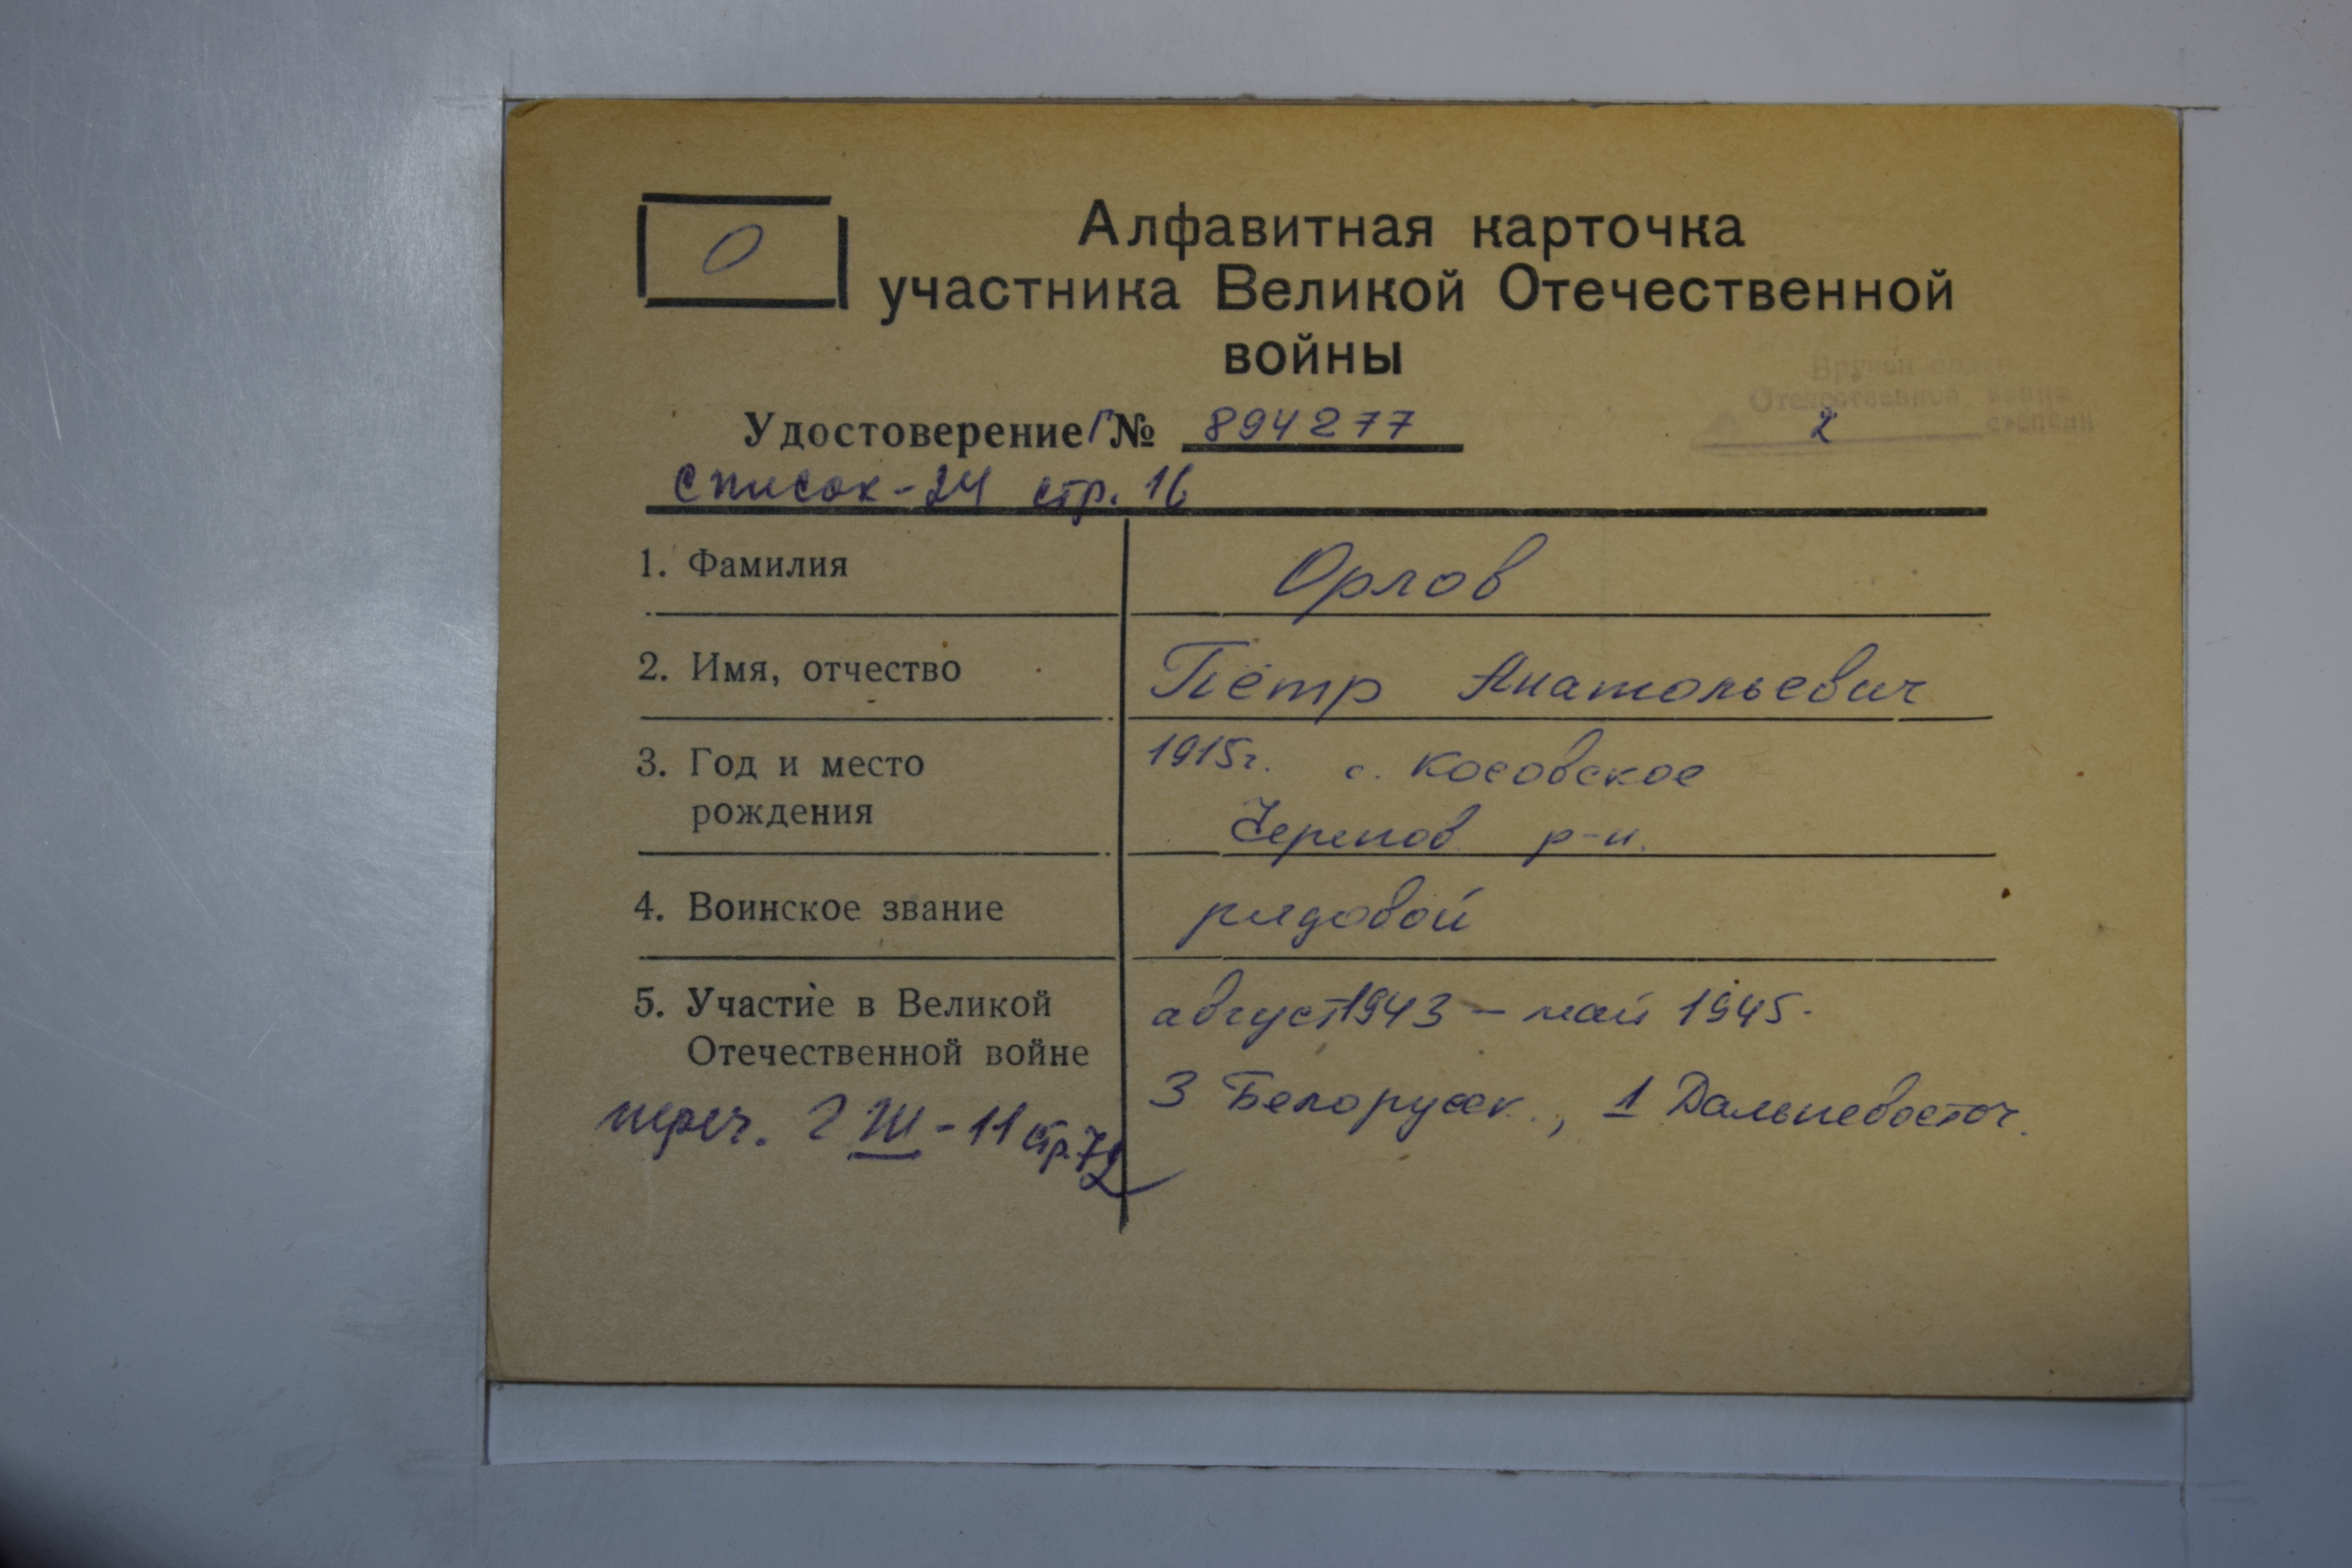 О
Алфавитная карточка
участника Великой Отечественной
войны
Вручен орден
Отечественной войны
2 степени
Удостоверение Г № 894277
список-24 стр. 16
1. Фамилия Орлов
2. Имя, отчество Пётр Анатольевич
3. Год и место 1915г. с. Косовское
рождения Черепов р-н.
4. Воинское звание рядовой
5. Участие в Великой август 1943 – май 1945.
Отечественной войне
3 Белорусск., 1 Дальневосточ.
переч. 2 Ш - 11 стр. 72